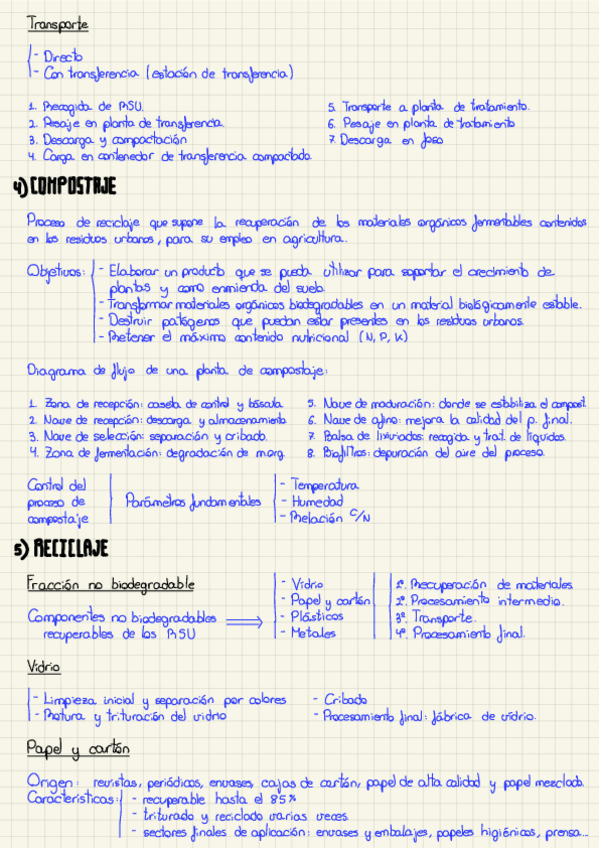 Transporte
- Directo
- Con transferencia (estación de transferencia)
1. Recogida de RSU.
2. Pesaje en planta de transferencia.
3. Descarga y compactación
4. Carga en contenedor de transferencia compactado.
5. Transporte a planta de tratamiento.
6. Pesaje en planta de tratamiento
7. Descarga en foso
4) COMPOSTAJE
Proceso de reciclaje que supone la recuperación de los materiales orgánicos fermentables contenidos
en los residuos urbanos, para su empleo en agricultura.
Objetivos:
- Elaborar un producto que se pueda utilizar para soportar el crecimiento de
plantas y como enmienda del suelo.
- Transformar materiales orgánicos biodegradables en un material biológicamente estable.
- Destruir patógenos que puedan estar presentes en los residuos urbanos.
- Retener el máximo contenido nutricional (N, P, K)
Diagrama de flujo de una planta de compostaje:
1. Zona de recepción: caseta de control y báscula
2. Nave de recepción: descarga y almacenamiento
3. Nave de selección: separación y cribado.
4. Zona de fermentación: degradación de m.org.
5. Nave de maduración: donde se estabiliza el compost.
6. Nave de afino: mejora la calidad del p. final.
7. Balsa de lixiviados: recogida y trat. de líquidos.
8. Biofiltros: depuración del aire del proceso.
Control del
proceso de
compostaje
Parámetros fundamentales
- Temperatura
- Humedad
- Relación C/N
5) RECICLAJE
Fracción no biodegradable
Componentes no biodegradables
recuperables de los RSU
- Vidrio
- Papel y cartón
- Plásticos
- Metales
1º. Recuperación de materiales.
2º. Procesamiento intermedio.
3º. Transporte.
4º. Procesamiento final.
Vidrio
- Limpieza inicial y separación por colores
- Rotura y trituración del vidrio
- Cribado
- Procesamiento final: fábrica de vidrio.
Papel y cartón
Origen: revistas, periódicos, envases, cajas de cartón, papel de alta calidad y papel mezclado.
Características:
- recuperable hasta el 85%
- triturado y reciclado varias veces
- sectores finales de aplicación: envases y embalajes, papeles higiénicos, prensa...